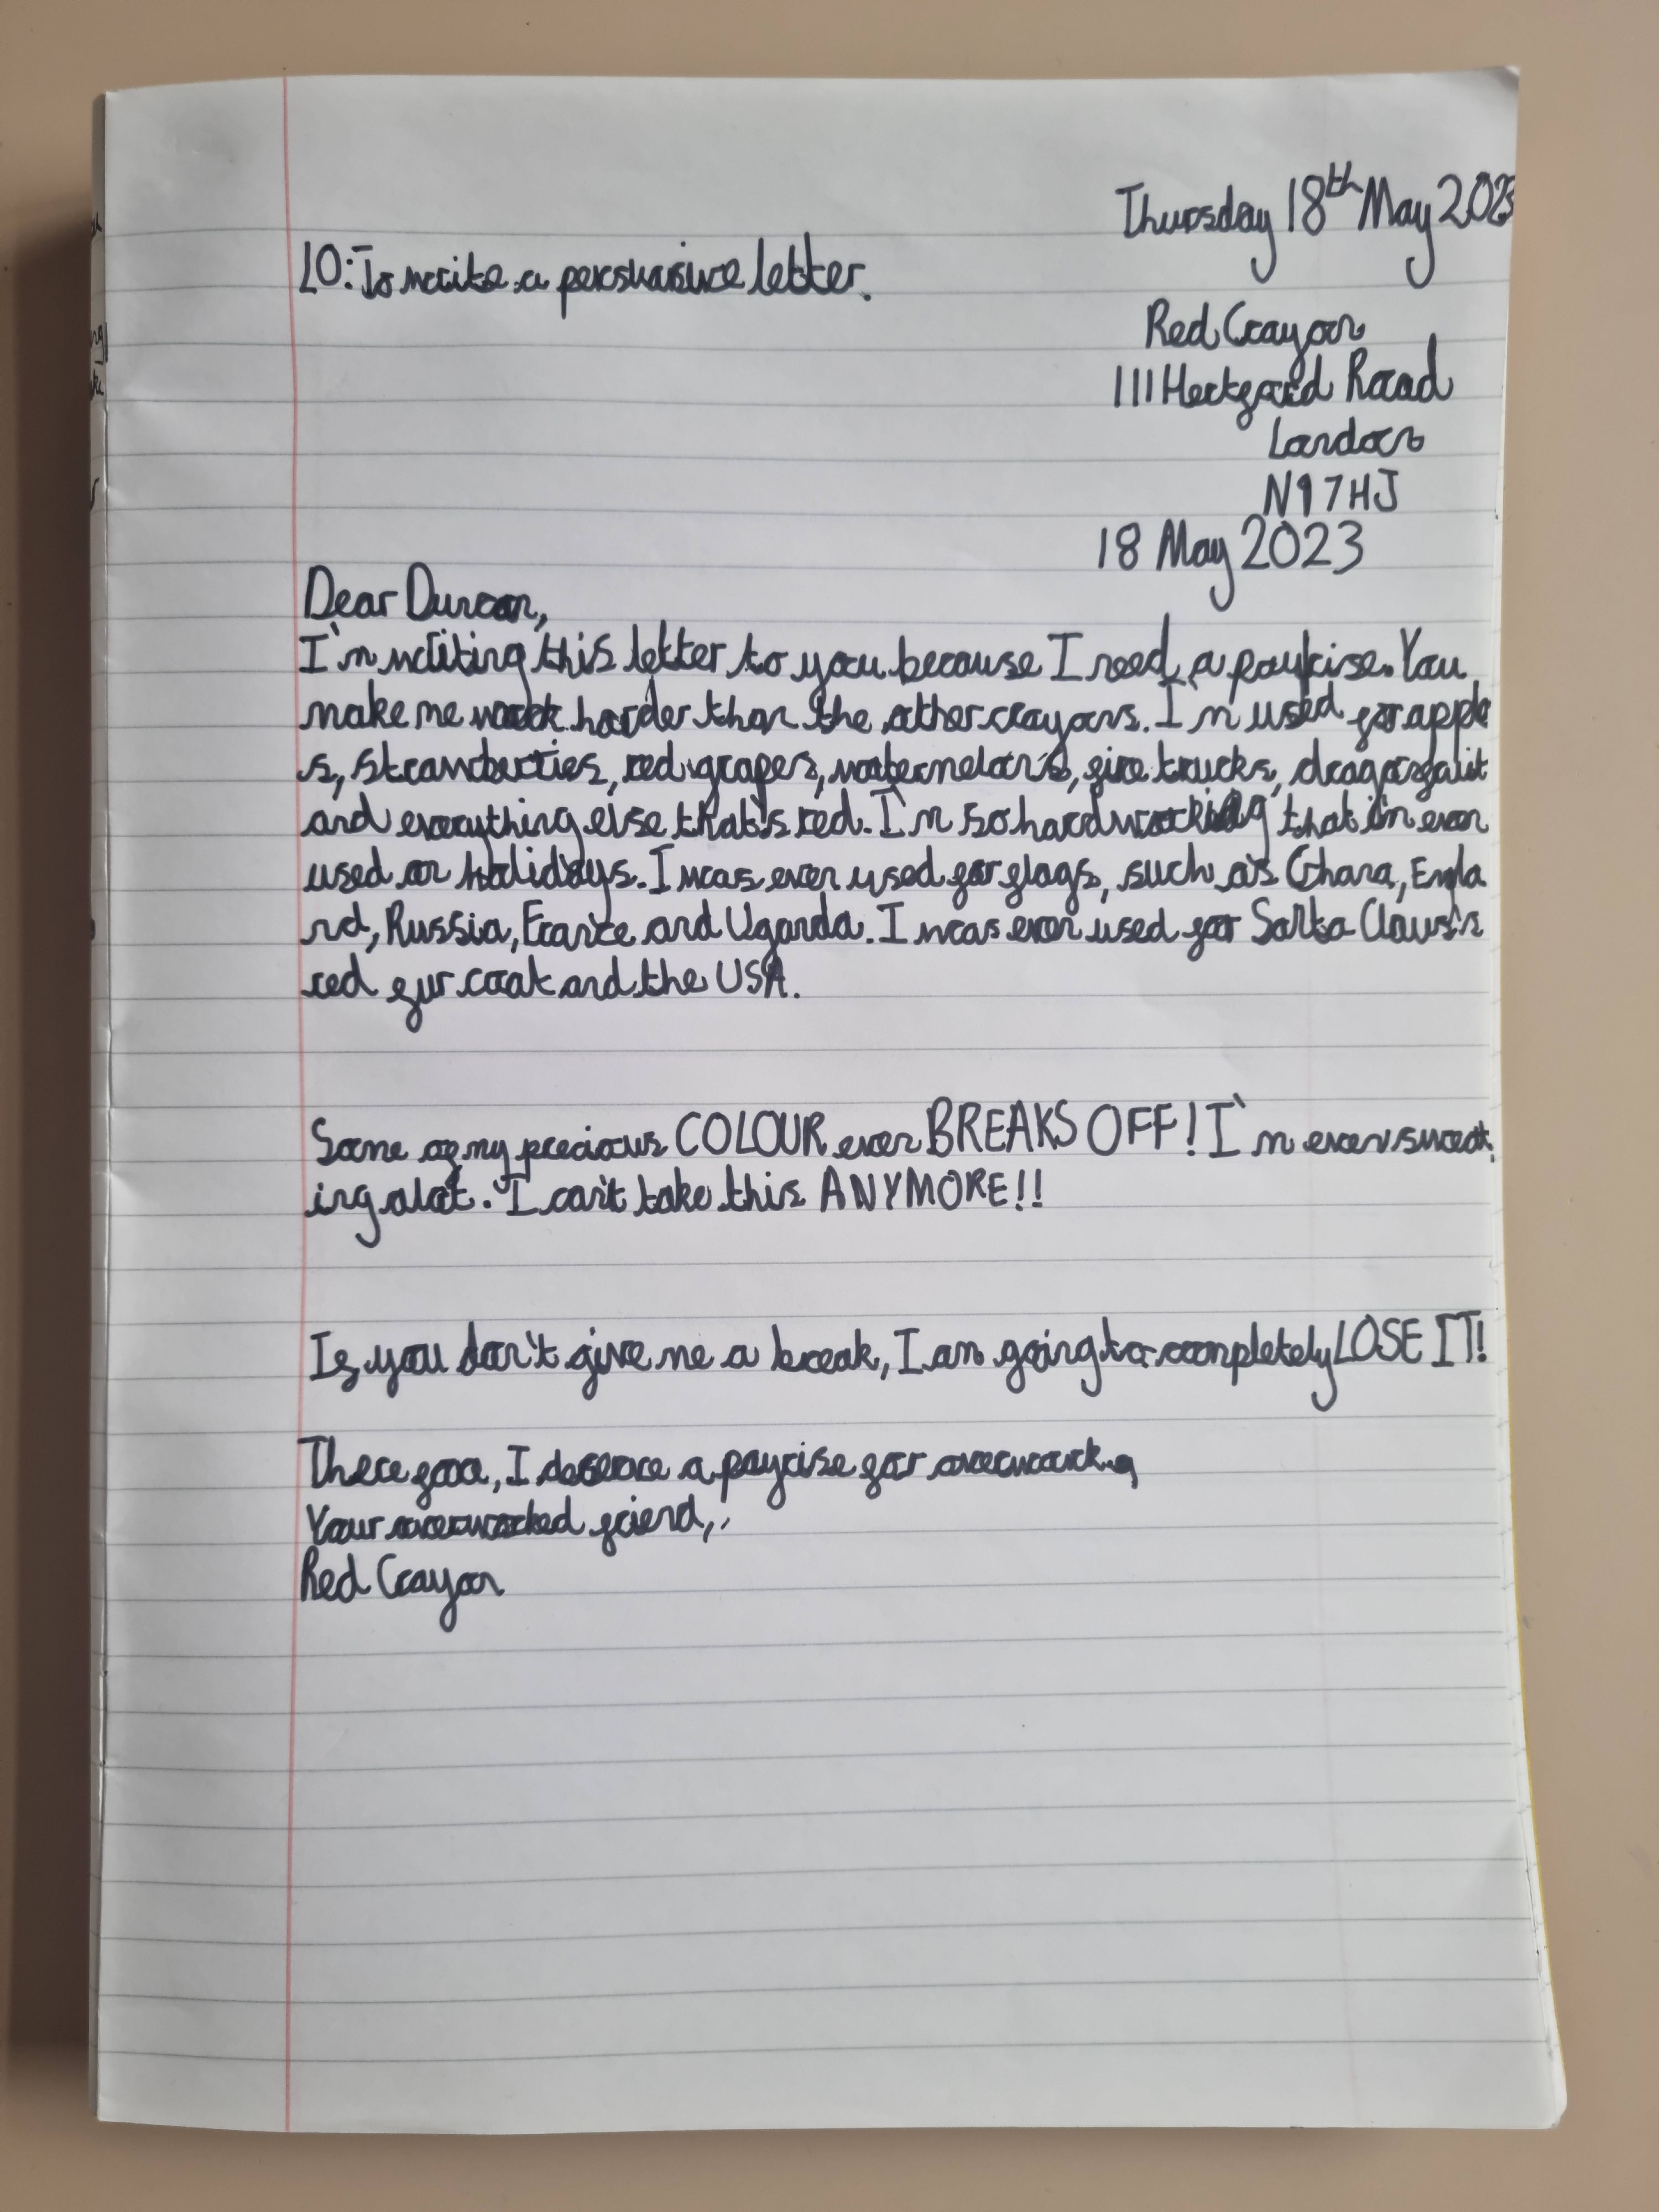 Thursday 18th May 2023
LO: To write a persuasive letter.
Red Crayon
111 Hertford Road
London
N9 7HJ
18 May 2023
Dear Duncan,
I'm writing this letter to you because I need a payrise. You
make me work harder than the other crayons. I'm used for apple
s, strawberries, red grapes, watermelons, fire trucks, dragonfruit
and everything else that's red. I'm so hardworking that i'm even
used on holidays. I was even used for flags, such as Ghana, Engla
nd, Russia, France and Uganda. I was even used for Santa Claus's
red fur coat and the USA.
Some of my precious COLOUR even BREAKS OFF! I'm even sweat
ing alot. I can't take this ANYMORE!!
If you don't give me a break, I am going to completely LOSE IT!
Therefore, I deserve a payrise for overworking
Your overworked friend,
Red Crayon